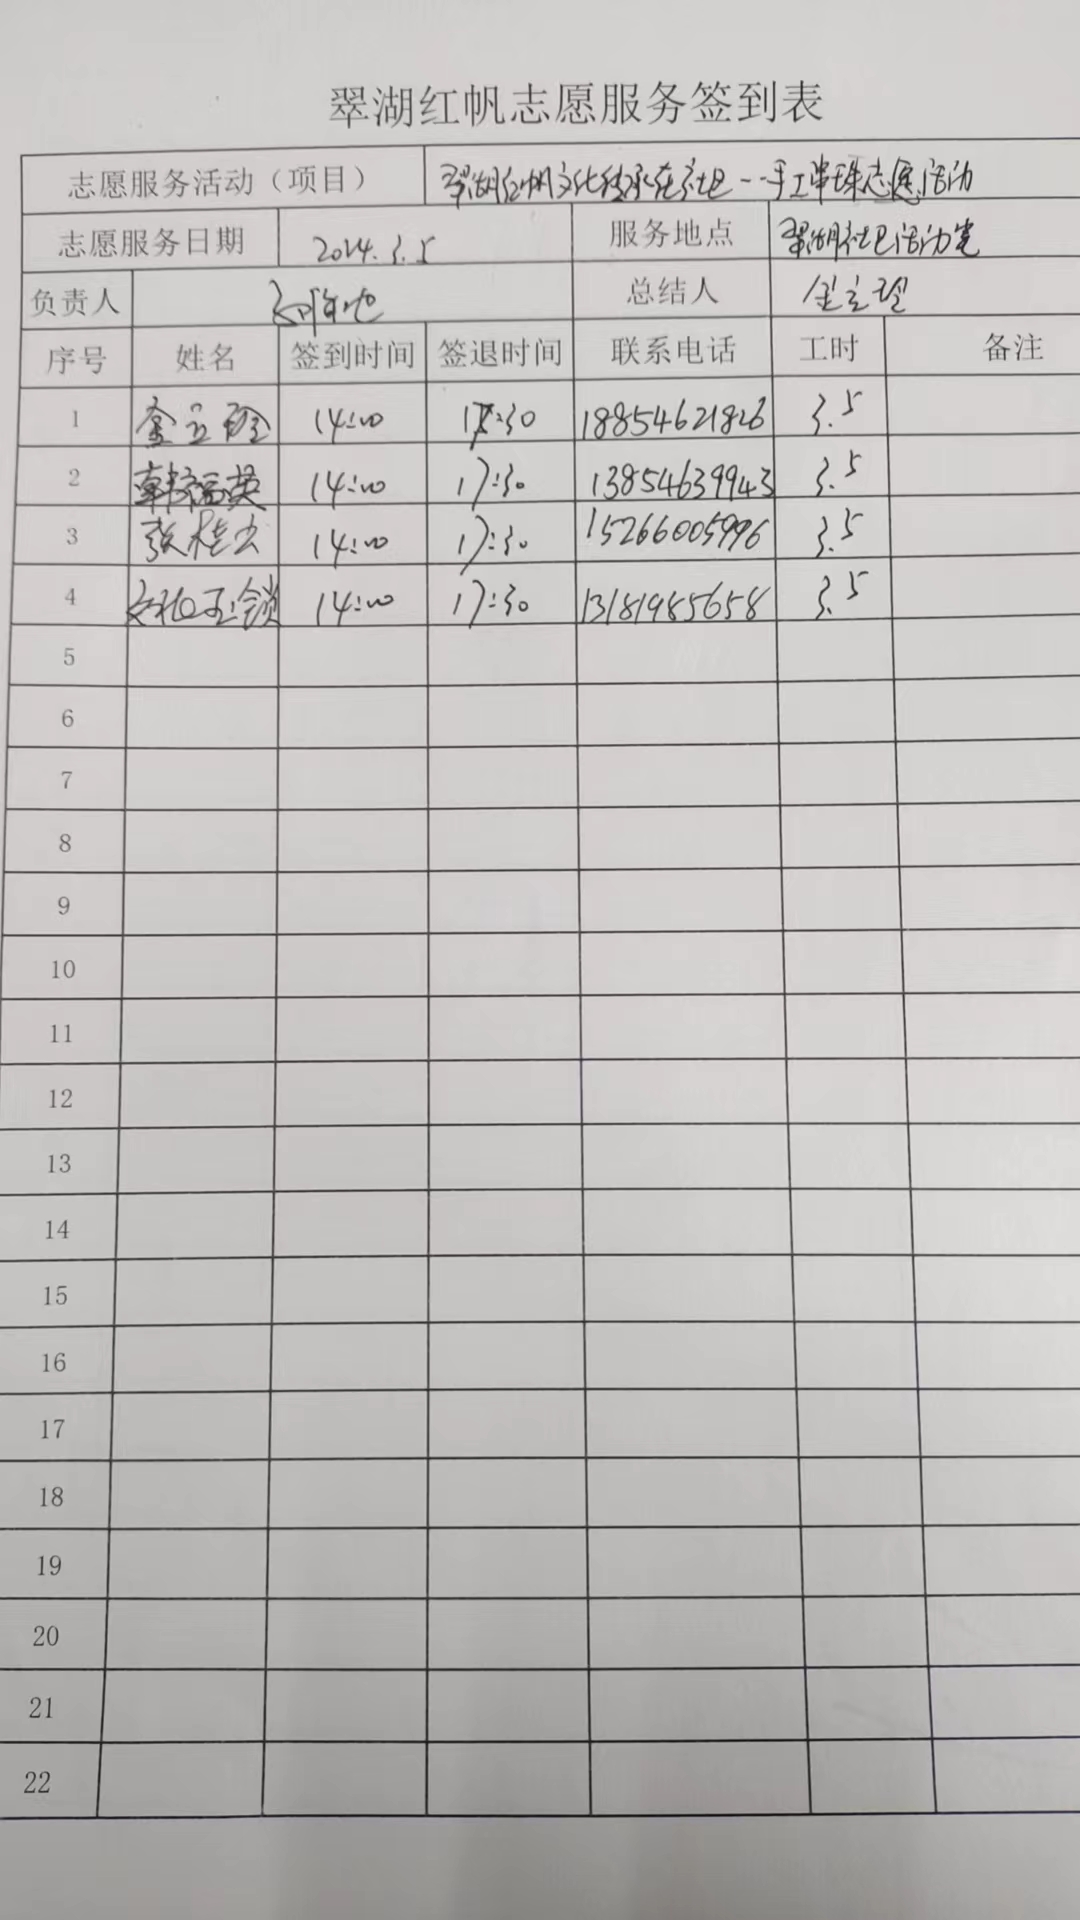 翠湖红帆志愿服务签到表
志愿服务活动（项目） 翠湖红帆文化传承在社区--手工串珠志愿活动
志愿服务日期 2024.3.5 服务地点 翠湖社区活动室
负责人 总结人 金立玲
序号 姓名 签到时间 签退时间 联系电话 工时 备注
1 金立玲 14:00 17:30 18854621826 3.5
2 韩福英 14:00 17:30 13854639943 3.5
3 张桂 14:00 17:30 15266005996 3.5
4 14:00 17:30 13181985658 3.5
5
6
7
8
9
10
11
12
13
14
15
16
17
18
19
20
21
22